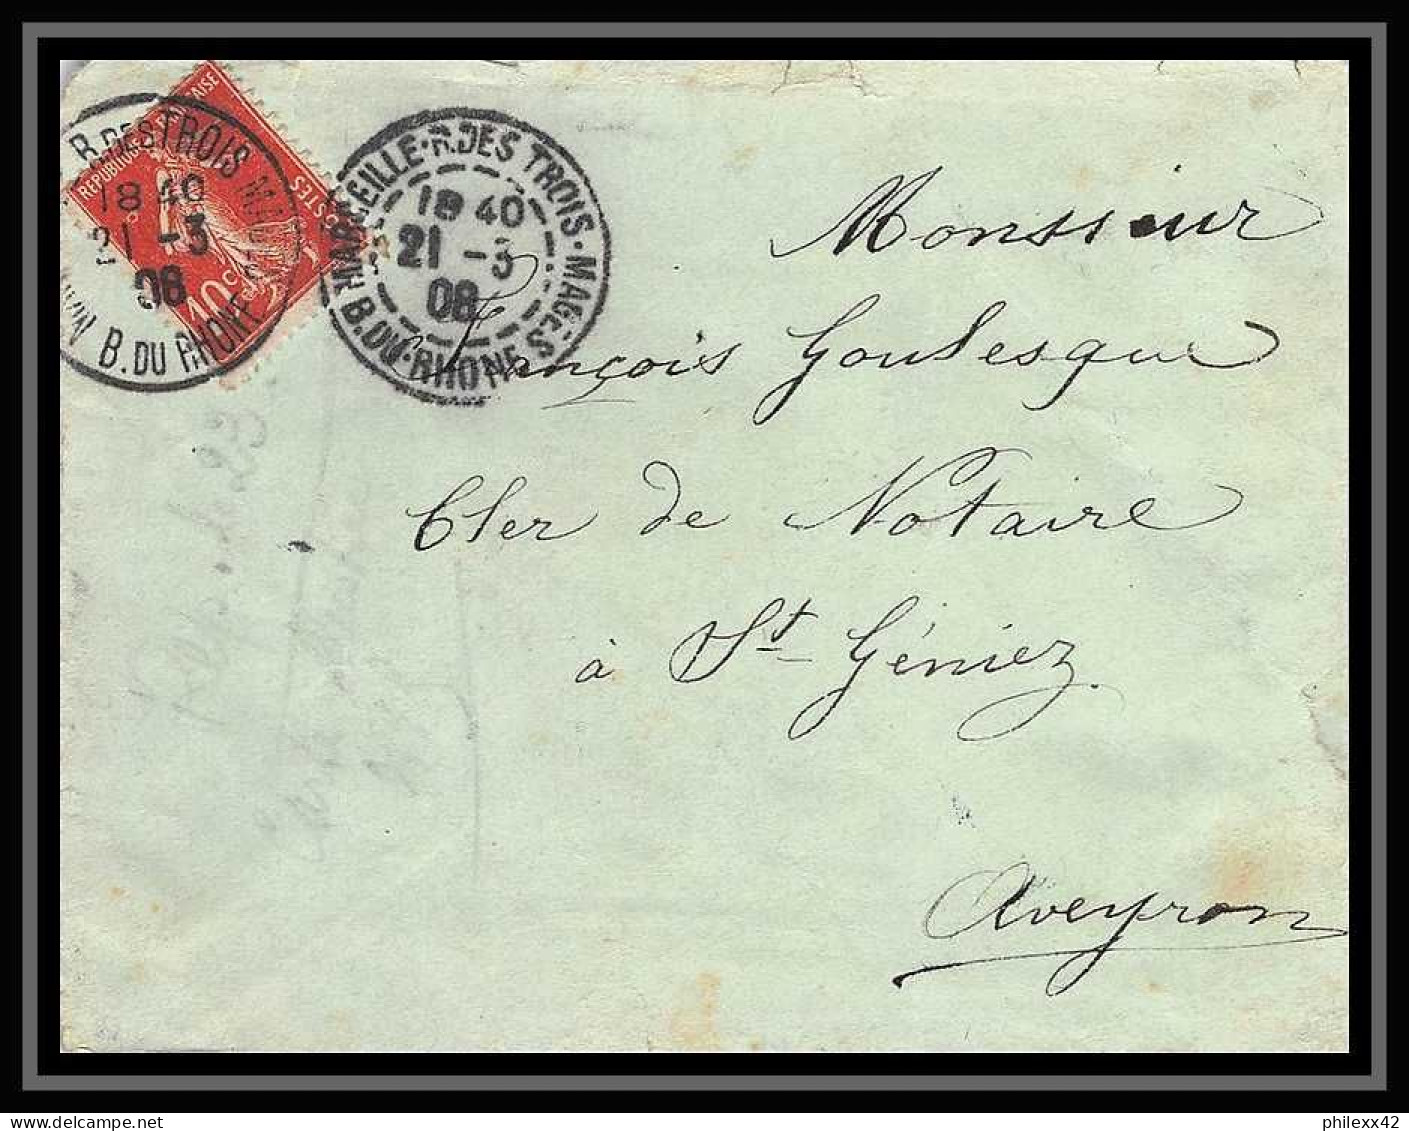 REPUBLIQUE FRANÇAISE
POSTES
10c
R. DES TROIS MAGES
18 40
21 -3
08
B. DU RHONE
MARSEILLE · R. DES TROIS · MAGES
18 40
21 -3
08
B. DU · RHONE
Monsieur
François Goulesque
Cler de Notaire
à St Géniez
Aveyron
philexx42